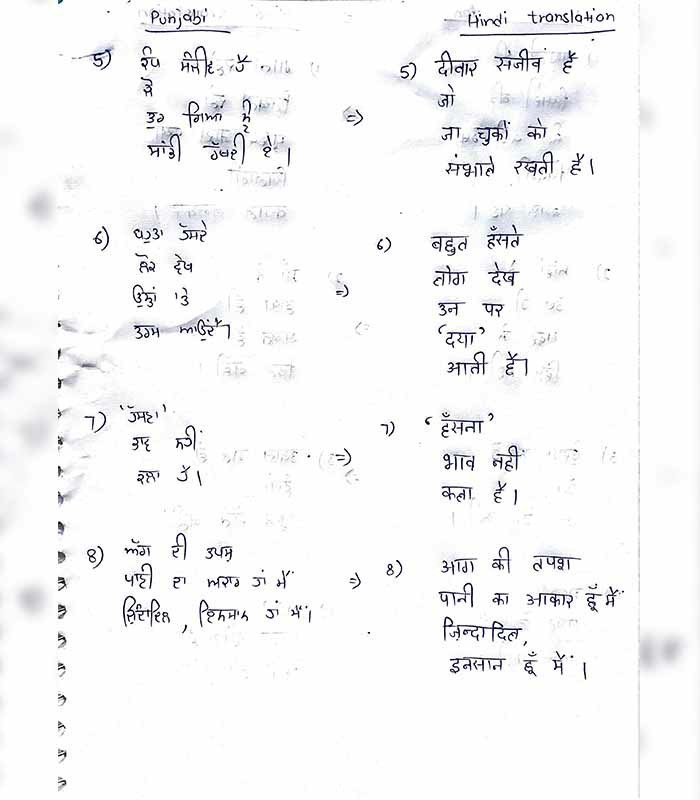 Punjabi
5) ਕੰਧ ਸੰਜੀਵ ਹੈ
ਜੋ
ਤੁਰ ਗਿਆਂ ਨੂੰ
ਸਾਂਭੀ ਰੱਖਦੀ ਹੈ।
=>
6) ਬਹੁਤਾ ਹੱਸਦੇ
ਲੋਕ ਦੇਖ
ਉਨ੍ਹਾਂ 'ਤੇ
ਤਰਸ ਆਉਂਦੈ।
=>
7) 'ਹੱਸਣਾ'
ਭਾਵ ਨਹੀਂ
ਕਲਾ ਹੈ।
=>
8) ਅੱਗ ਦੀ ਤਪਸ਼
ਪਾਣੀ ਦਾ ਅਕਾਰ ਹਾਂ ਮੈਂ
ਜ਼ਿੰਦਾਦਿਲ, ਇਨਸਾਨ ਹਾਂ ਮੈਂ।
=>
Hindi translation
5) दीवार संजीव है
जो
जा चुकों को
संभाले रखती है।
6) बहुत हँसते
लोग देख
उन पर
'दया'
आती है।
7) 'हँसना'
भाव नही
कला है।
8) आग की तपश
पानी का आकार हूँ मैं
ज़िन्दादिल,
इनसान हूँ मैं।